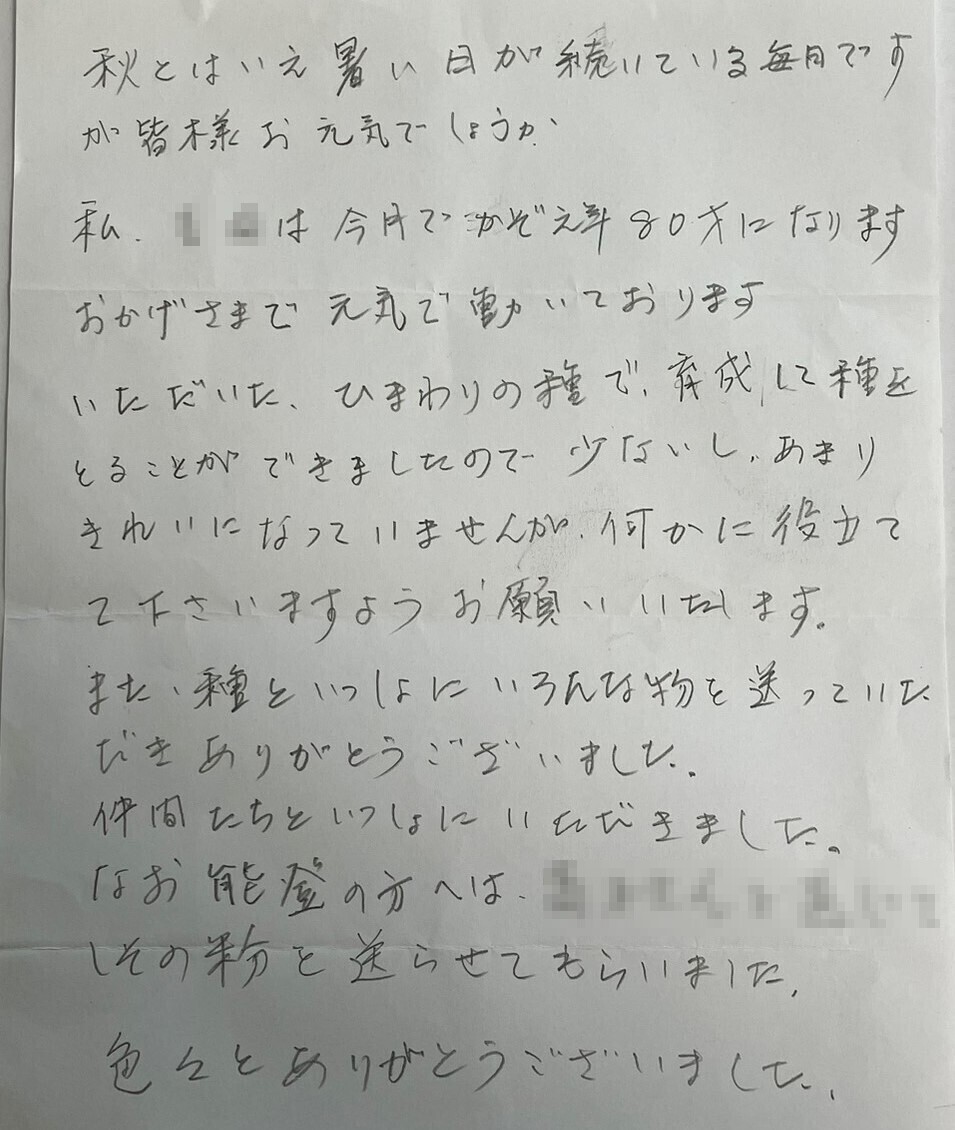 秋とはいえ暑い日が続いている毎日です
が皆様お元気でしょうか
私、は今月でかぞえ年80才になります
おかげさまで元気で動いております
いただいた、ひまわりの種で、育成して種を
とることができましたので少ないし、あまり
きれいになっていませんが、何かに役立て
て下さいますようお願いいたします。
また、種といっしょにいろんな物を送っていた
だきありがとうございました。
仲間たちといっしょにいただきました。
なお能登の方へは、
しその粉を送らせてもらいました、
色々とありがとうございました、